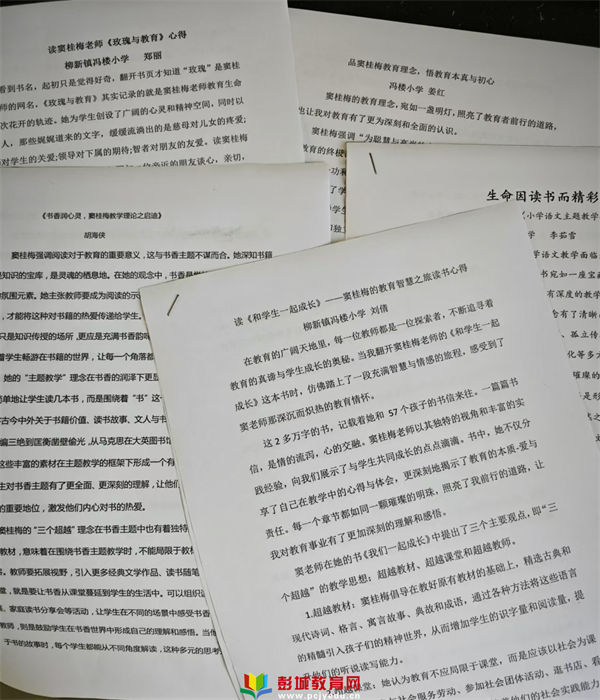 读窦桂梅老师《玫瑰与教育》心得
柳新镇冯楼小学 郑丽
看到书名，起初只是觉得好奇，翻开书页才知道“玫瑰”是窦桂
师的网名，《玫瑰与教育》其实记录的就是窦桂梅老师教育生命
次花开的轨迹。她为学生创设了广阔的心灵和精神空间，同时以
人，那些娓娓道来的文字，缓缓流淌出的是慈母对儿女的疼爱；
对学生的关爱；领导对下属的期待；智者对朋友的友爱。读窦桂梅
品窦桂梅教育理念，悟教育本真与初心
冯楼小学 姜红
窦桂梅的教育理念，宛如一盏明灯，照亮了教育者前行的道路，
也让我对教育有了更为深刻和全面的认识。
《书香润心灵，窦桂梅教学理论之启迪》
胡海侠
窦桂梅强调阅读对于教育的重要意义，这与书香主题不谋而合。她深知书籍
是知识的宝库，是灵魂的栖息地。在她的观念中，书香是
氛围元素。她主张教师要成为阅读的示
，才能将这种对书籍的热爱传递给学生
只是知识传授的场所，更应是充满书香韵味
着学生畅游在书籍的世界，让每一个角落都
她的“主题教学”理念在书香的润泽下更显
单地让学生读几本书，而是围绕着“书”这一
古今中外关于书籍价值、读书故事、文人与书
编三绝到匡衡凿壁偷光，从马克思在大英图书馆
这些丰富的素材在主题教学的框架下形成一个有
生对书香主题有了更全面、更深刻的理解，让他们
的重要地位，激发他们内心对书的热爱。
窦桂梅的“三个超越”理念在书香主题中也有着独特
教材，意味着在围绕书香主题教学时，不能局限于教材
。教师要拓展视野，引入更多经典文学作品、读书随笔
堂，就是要让书香从课堂蔓延到学生的生活中。可以组织
、家庭读书分享会等活动，让学生在不同的场景中感受书香
教师，则是鼓励学生在书香世界中形成自己的理解和感悟。当他
于书的故事时，每个学生都能从不同角度解读，这种多元的思考
生命因读书而精彩
小学语文主题教学
李茹雪
语文教学面临
读《和学生一起成长》——窦桂梅的教育智慧之旅读书心得
柳新镇冯楼小学 刘倩
在教育的广阔天地里，每一位教师都是一位探索者，不断追寻着
教育的真谛与学生成长的奥秘。当我翻开窦桂梅老师的《和学生一起
成长》这本书时，仿佛踏上了一段充满智慧与情感的旅程，感受到了
窦老师那深沉而炽热的教育情怀。
这 2 多万字的书，记载着她和 57 个孩子的书信来往。一篇篇书
信，是情的流泻，心的交融。窦桂梅老师以其独特的视角和丰富的实
践经验，向我们展示了与学生共同成长的点点滴滴。书中，她不仅分
享了自己在教学中的心得与体会，更深刻地揭示了教育的本质-爱与
责任。每一个章节都如同一颗璀璨的明珠，照亮了我前行的道路，让
我对教育事业有了更加深刻的理解和感悟。
窦老师在她的书《我们一起成长》中提出了三个主要观点，即“三
个超越”的教学思想：超越教材、超越课堂和超越教师。
1.超越教材：窦桂梅倡导在教好原有教材的基础上，精选古典和
现代诗词、格言、寓言故事、典故和成语，通过各种方法将这些语言
的精髓引入孩子们的精神世界，从而增加学生的识字量和阅读量，提
他们的听说读写能力。
课堂：她认为教育不应局限于课堂，而是应该以社会为课
社会服务劳动、参加社会团体活动、逛书店、看
们的社会实践能力
彭城教育网
www.pcjyedu.cn